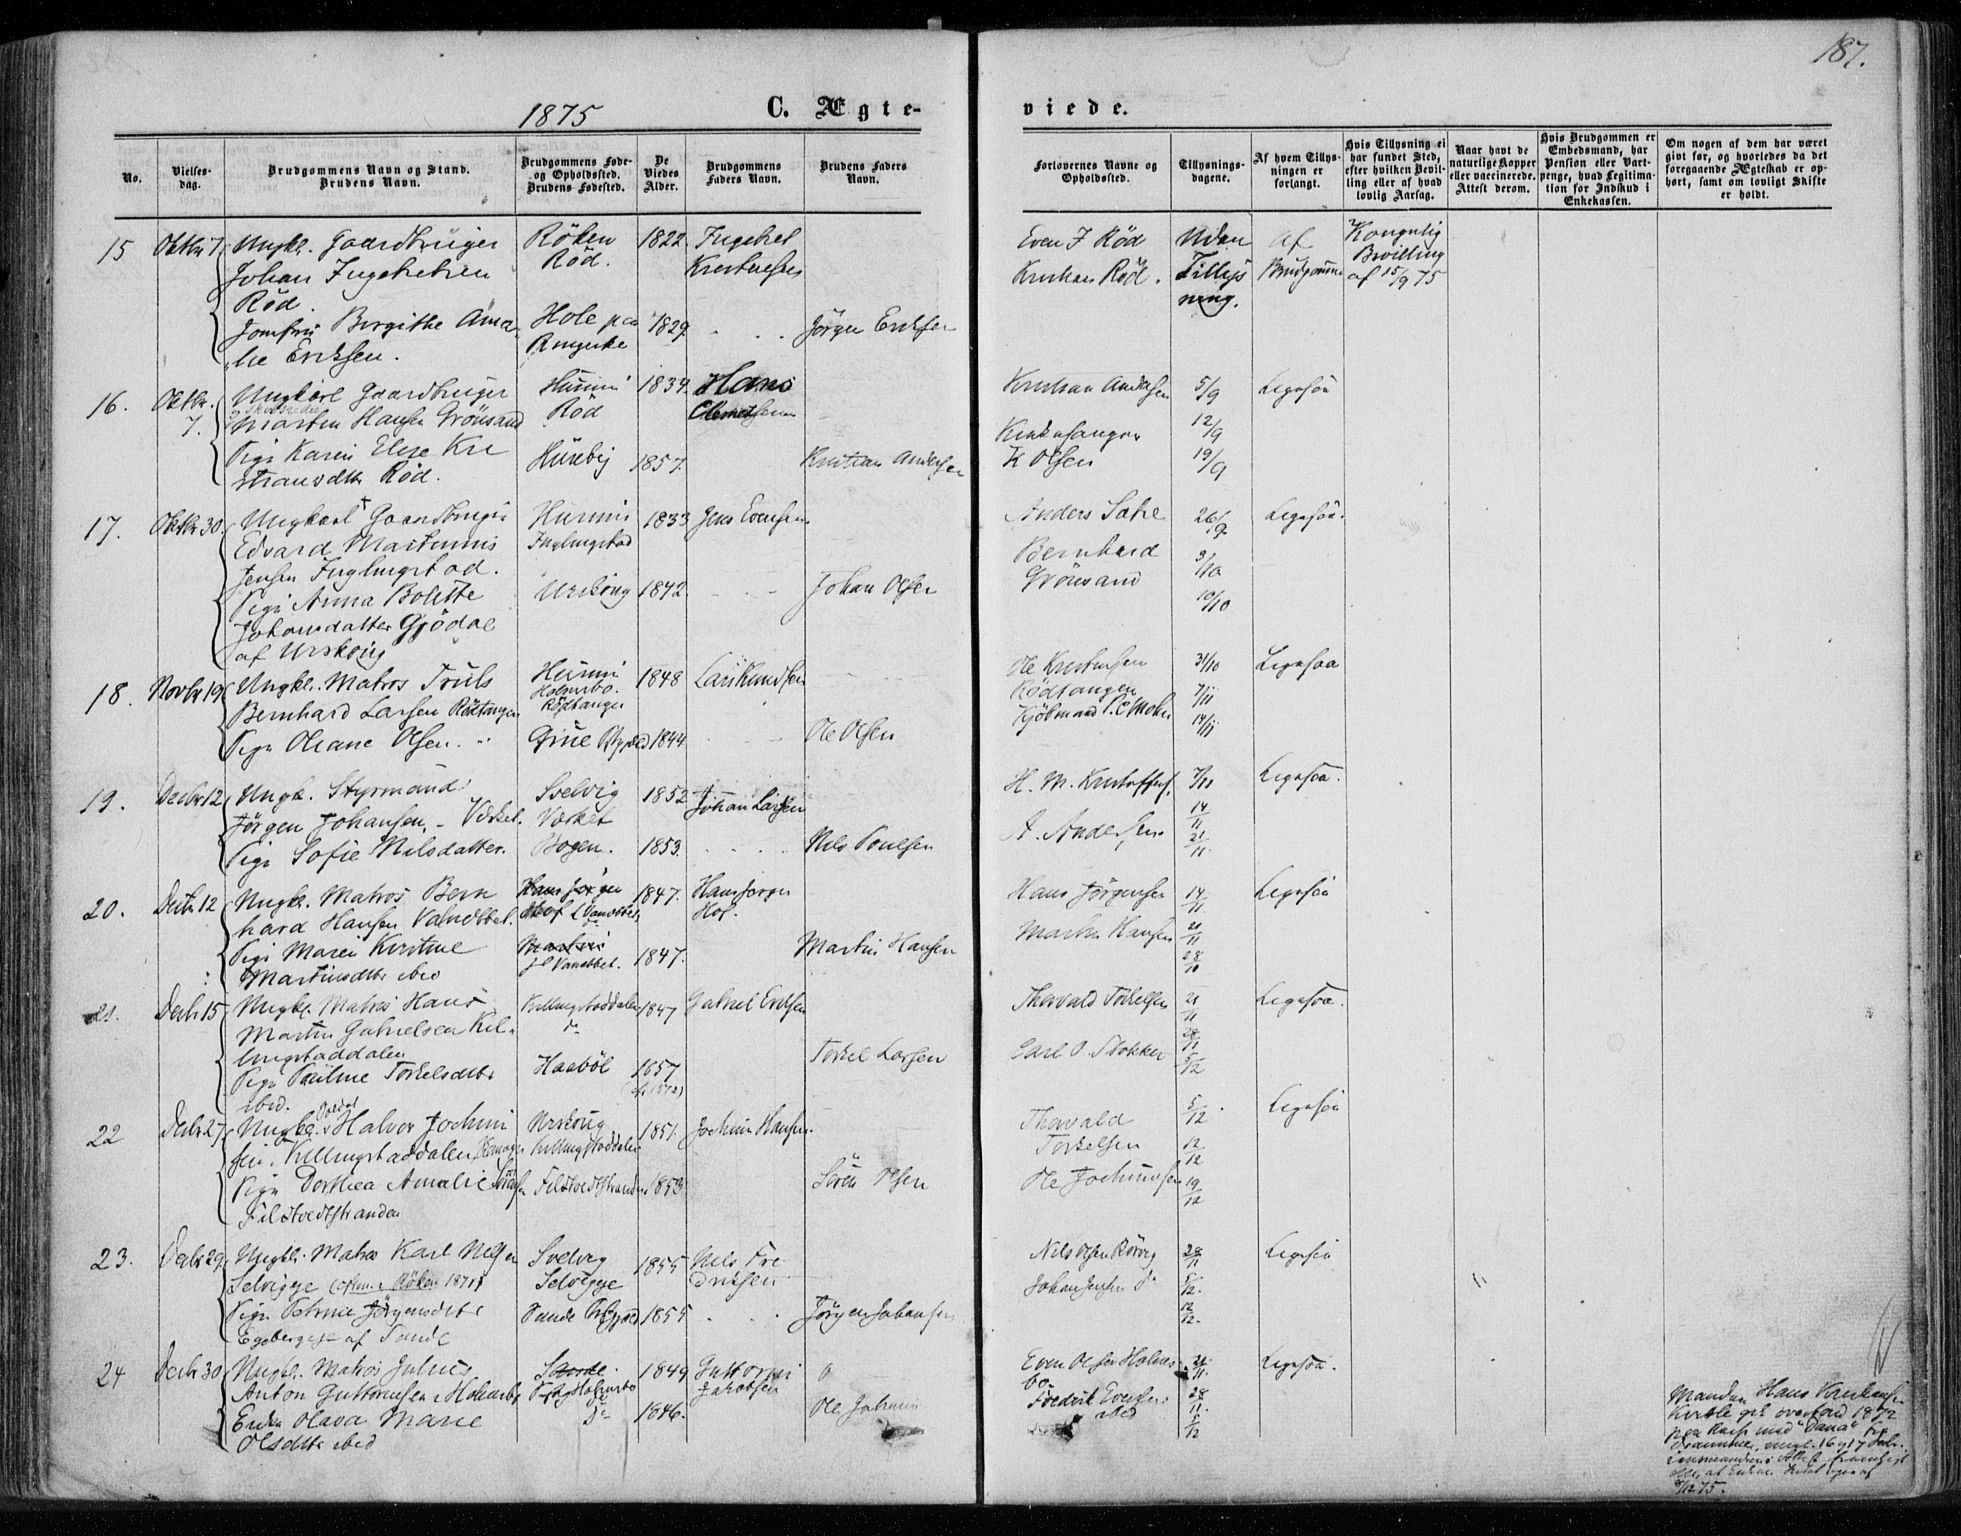 187.
1875
C. Ægte-
viede.
No.
Vielses-
dag.
Brudgommens Navn og Stand.
Brudens Navn.
Brudgommens Føde-
og Opholdssted.
Brudens Fødested.
De
Viedes
Alder.
Brudgommens
Faders Navn.
Brudens Faders
Navn.
Forlovernes Navne og
Opholdssted.
Tillysnings-
dagene.
Af hvem Tillys-
ningen er
forlangt.
Hvis Tillysning ei
har fundet Sted,
efter hvilken Bevil-
ling eller af hvad
lovlig Aarsag.
Naar havt de
naturlige Kopper
eller vaccinerede.
Attest derom.
Hvis Brudgommen er
Embedsmand, har
Pension eller Vart-
penge, hvad Legitima-
tion for Indskud i
Enkekassen.
Om nogen af dem har været
gift før, og hvorledes da det
foregaaende Ægteskab er op-
hørt, samt om lovligt Skifte
er holdt.
15
Oktbr 7
Ungkl. Gaardbruger
Johan Ingebretsen
Röd.
Jomfru Birgithe Ama
lie Eriksen.
Röken
Röd.
Hole paa
Ringerike
1822
1829
Ingebret
Jörgen Eriksen
Even I Röd
Kristian Röd.
Uden
Tillys
ning.
af
Brudgommen
Kongelig
Bevilling
af 15/9 75
16.
Oktbr.
7.
Ungkarl Gaardbruger
Martin Hansen Grönsand
Pige Karen Elise Kri
stiansdtr Röd.
Hurum
Röd
Huseby
1834.
1857.
Hans
Kristian Andersen
Kristian Andersen
Kirkesanger
K Olsen
5/9
12/9
19/9
Ligesaa
17.
Oktbr 30
Ungkarl Gaardbruger
Edvard Martinius
Jensen Fuglingstad.
Pige Anna Bolette
Johansdatter Gjödal
af Urskoug
Hurum
Fuglingstad
Urskoug
1833
1842
Jens Evensen.
Johan Olsen
Anders Sætre
Bernhard
Grönsand
26/9
3/10
10/10
Ligesaa.
18.
Novbr 19
Ungkl. Matros Truls
Bernhard Larsen Rödtangen
Pige Oliane Olsen.
Hurum
Holmsbo.
Rödtangen
1848
1844
Lars Knudsen
Ole Olsen
Ole Kristensen
Rödtangen
Kjöbmand P. C Mohr
31/10
7/11
14/11
Ligesaa
19.
Decbr 12
Ungk. Styrmand
Jørgen Johansen, - Værket.
Pige Sofie Nilsdatter.
Svelvig
Værket
Bogen.
1852
1853.
Johan Larsen
Nils Poulsen
H. M. Kristoffers.
A. Andersen
7/11
14/11
21/11
Ligesaa.
20.
Decbr 12
Ungkl. Matros Bern
hard Hansen
Pige Maren Kirstine
Martinsdtr ibid
1847.
1847.
Hans Jørgen
Hof.
Martin Hansen
Hans Jørgensen
Martin Hansen
14/11
21/11
28/10
Ligesaa
21.
Decbr 15
Ungkl. Matros Hans
Martin Gabrielsen Kil-
lingstaddalen
Pige Pauline Torkelsdtr
ibid.
Killingstaddalen
do
Haabøl
1847
1857
Gabriel Eriksen
Torkel Larsen
Thorvald Torkelsen
Carl O. Stokker
21/11
28/11
5/12
Ligesaa.
22
Decbr 27
Ungkl. Halvor Jochim
sen. Killingstaddalen
Pige Dorthea Amalie
Filstvedtstranden
Urskoug
Killingstaddalen
Filstvedtstranden
1851.
1853
Jochim Hansen.
Sören Olsen
Thorvald
Torkelsen
Ole Jochimsen
5/12
12/12
19/12
Ligesaa
23.
Decbr 29
Ungkl. Matros Karl Nilsen
Selvigge
Pige Petrine Jörgensdtr
af Sande
Svelvig
Selvigge
Sande
1855
1855
Nils Fre
driksen
Jörgen Johansen
Nils Olsen Rörvig
Johan Jensen do
28/11
5/12.
12/12.
Ligesaa
24
Decbr 30
Ungkl. Matros Julius
Anton Guttormsen Holmsbo
Enken Olava Marie
Olsdtr ibid
do
1849
1846.
Guttorm
Jakobsen
Even Olsen Holms-
bo.
Fredrik Evensen
ibid
21/11.
28/11.
5/12
Ligesaa.
Manden Hans Kristiansen
1872
med "Dana"
Drammen
/12 75.